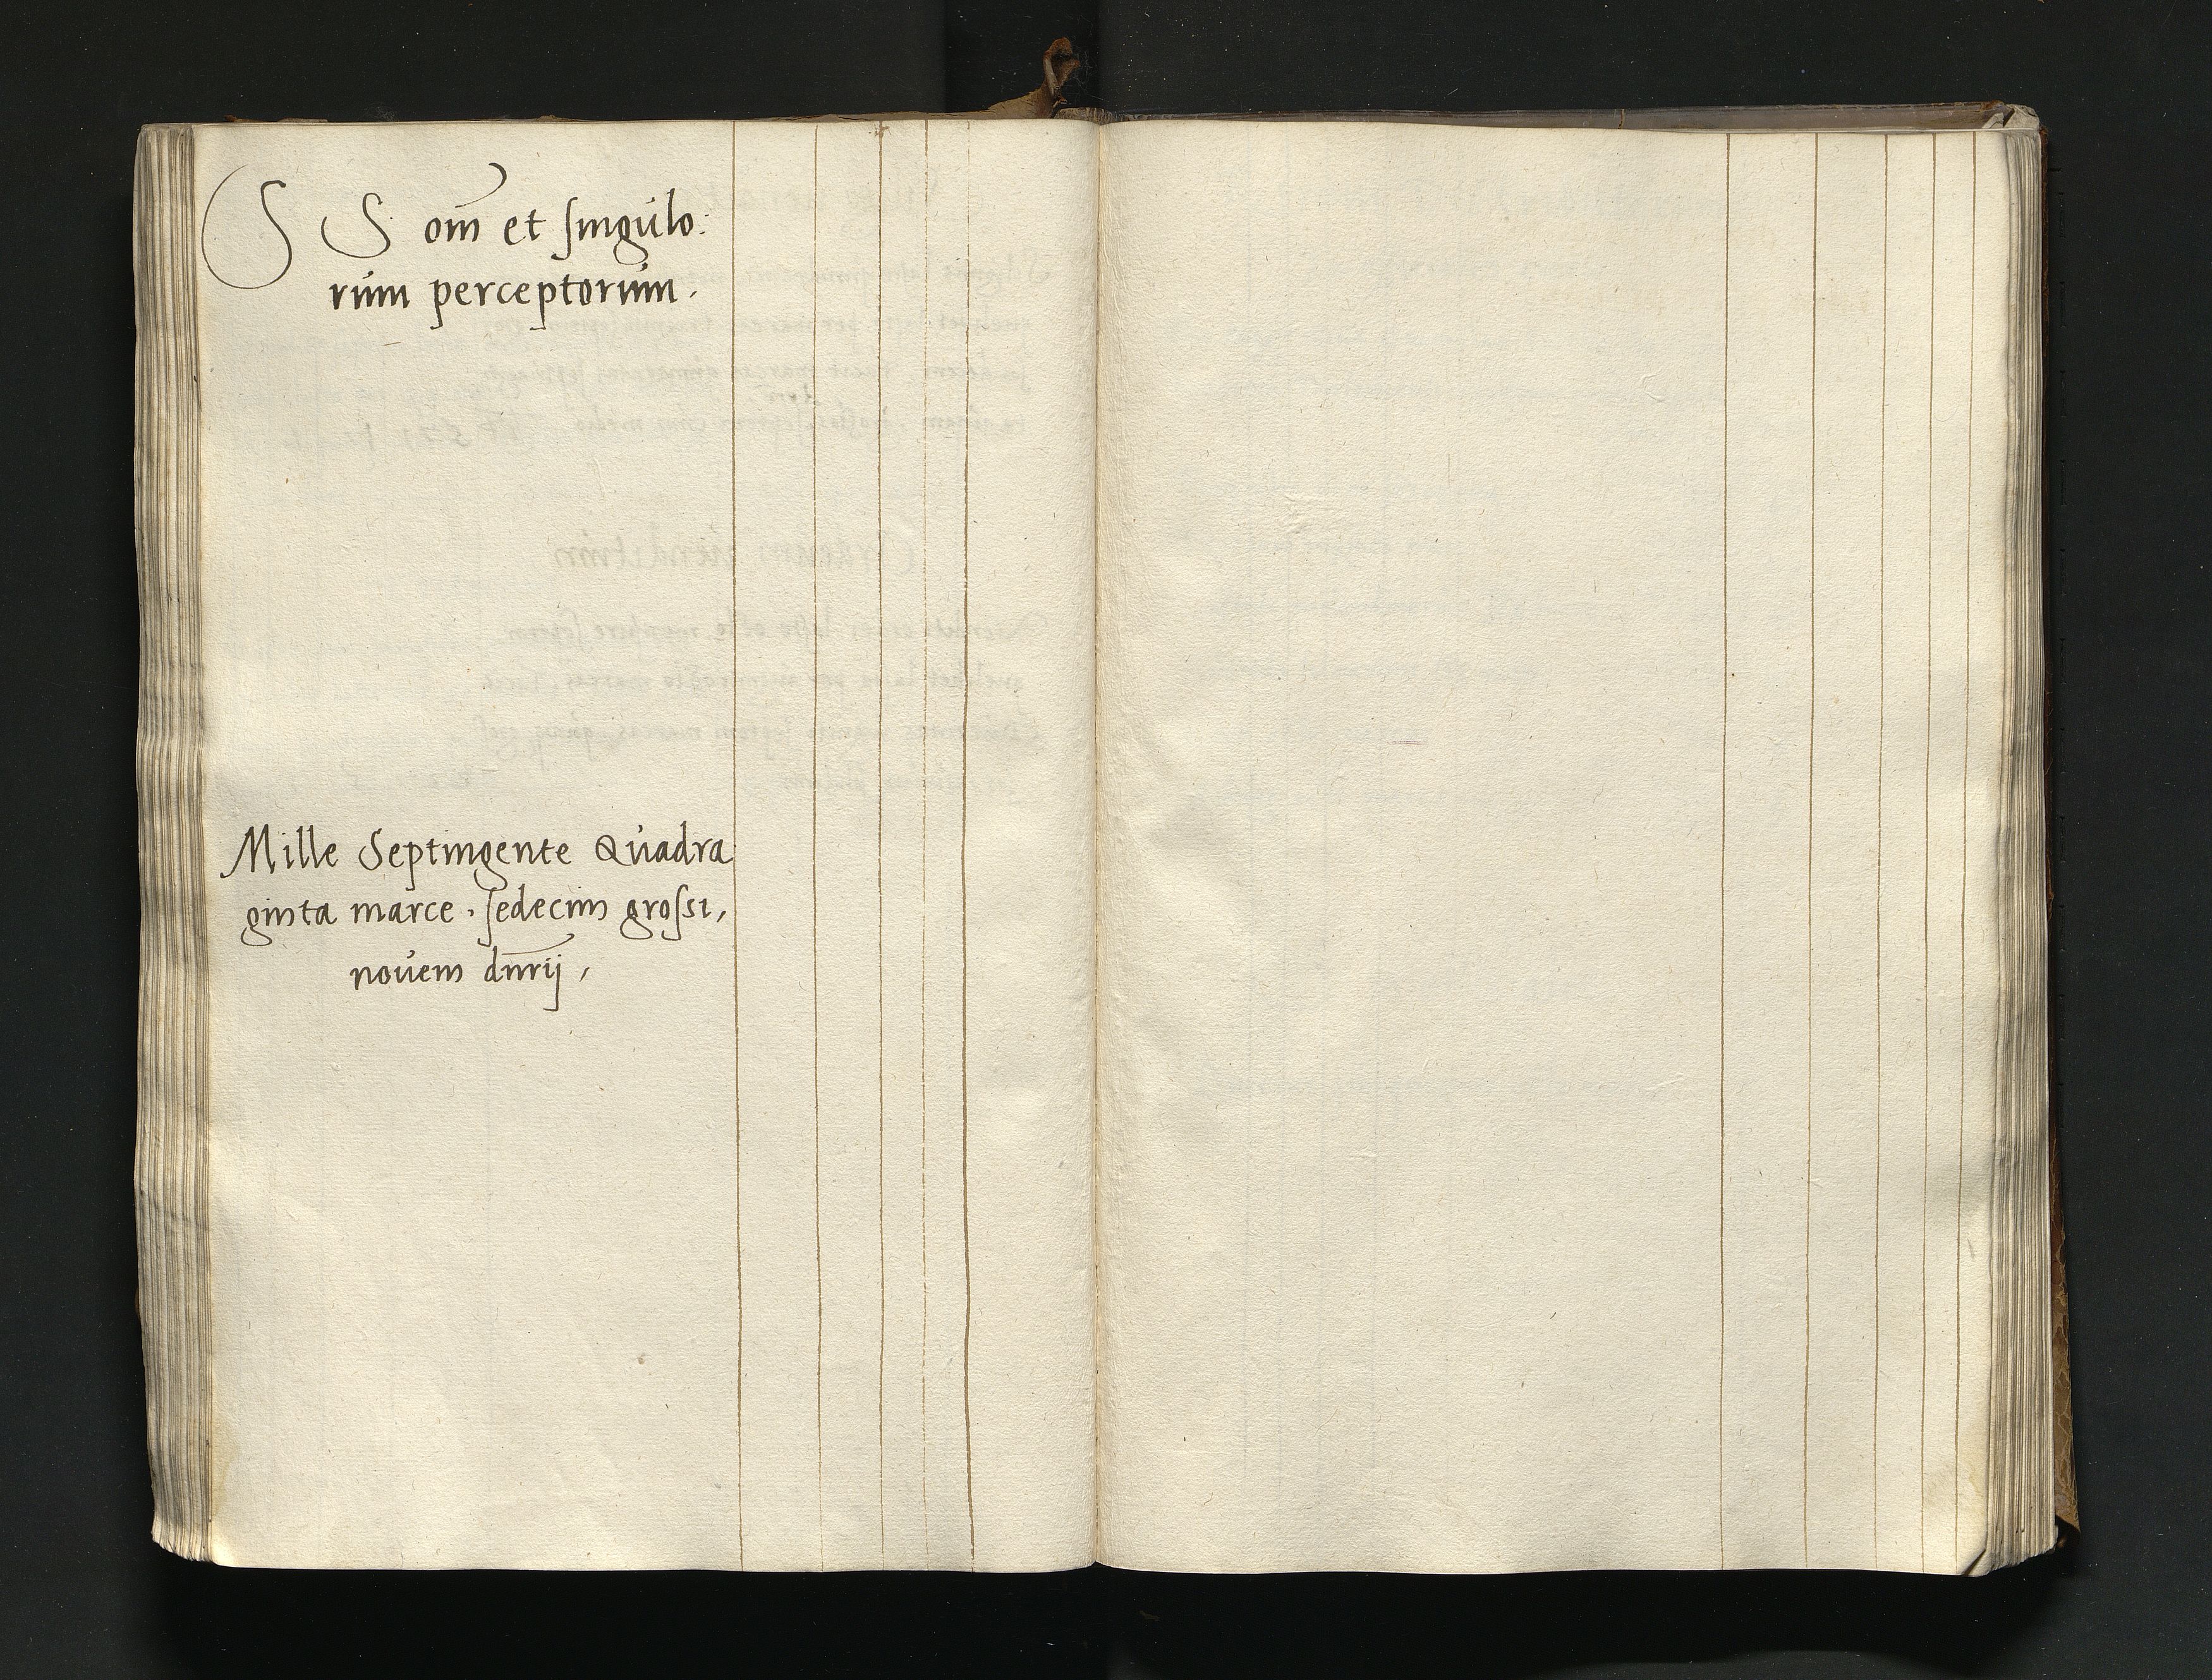 S S om̄ et ſingulo:
rum perceptorum.
Mille Septingente Quadra
ginta marce, ſedecim groſsi,
novem dn̄rij,